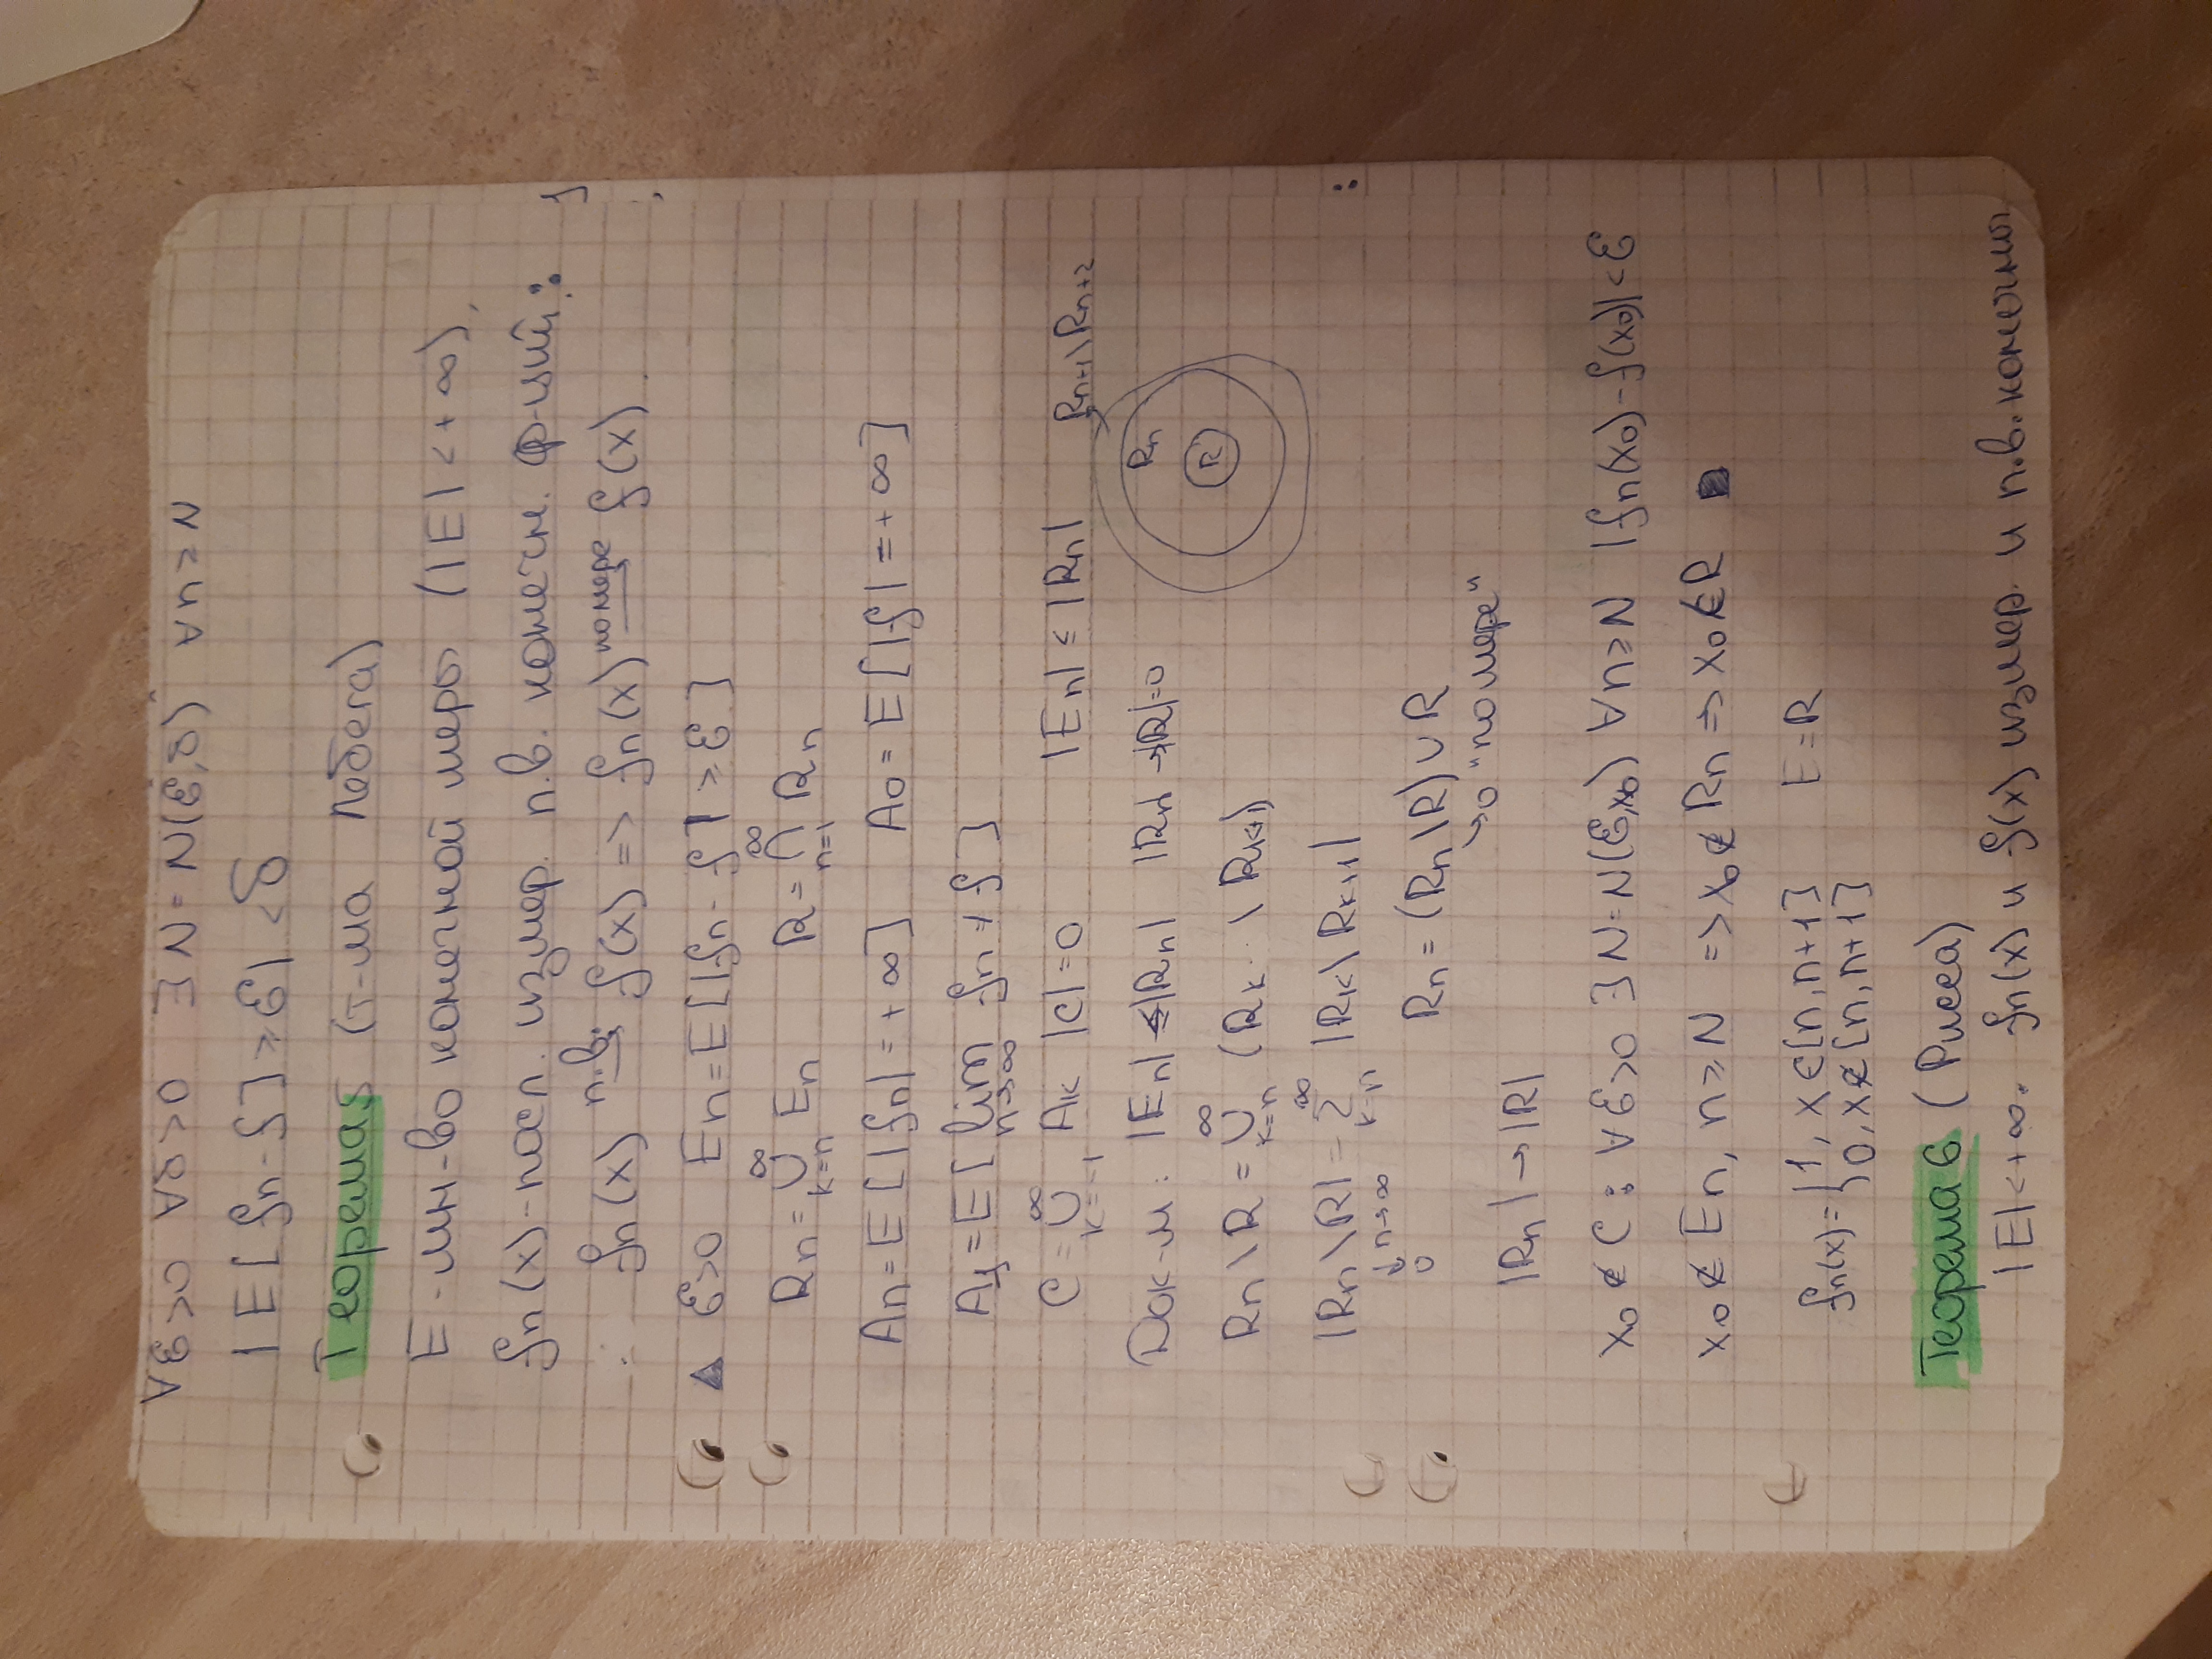 ∀ε>0 ∀δ>0 ∃N=N(ε,δ) ∀n≥N
|E[fn-f]≥ε|<δ
Теорема5 (т-ма Лебега)
E-мн-во конечной меры (|E|<+∞),
fn(x)-посл. измер. п.в. конечн. ф-ций:
fn(x) п.в. f(x) => fn(x) по мере f(x).
▲ ε>0 En=E[|fn-f|≥ε]
Rn=∞∪k=n En R=∞∩n=1 Rn
An=E[|fn|=+∞] A0=E[|f|=+∞]
=E[lim n→∞ fn≠f]
C=∞∪k=-1 Ak |C|=0 |En|≤|Rn| Rn+1\Rn+2
Rn
R
Док-м: |En|≤|Rn| |Rn|→|R|=0
Rn\R=∞∪k=n (Rk\Rk+1)
|Rn\R|=∞Σk=n |Rk\Rk+1|
↓n→∞
0
Rn=(Rn\R)∪R
→0 "по мере"
|Rn|→|R|
x0∉C: ∀ε>0 ∃N=N(ε,x0) ∀n≥N |fn(x0)-f(x0)|<ε
x0∉En, n≥N => x0∉Rn => x0∉R ■
fn(x)={1, x∈[n,n+1] E=R
0, x∉[n,n+1]
Теорема 6 (Рисса)
|E|<+∞. fn(x) и f(x) измер. и п.в. конечны